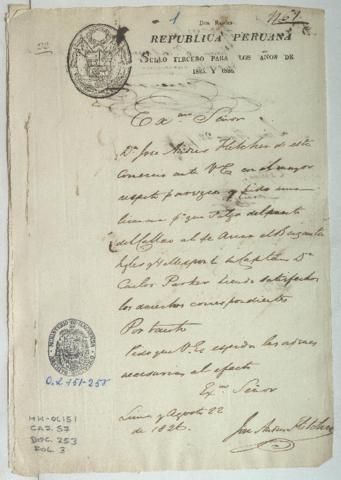 1
Dos Reales
REPUBLICA PERUANA
SELLO TERCERO PARA LOS AÑOS DE
1825 Y 1826.
Exmo Señor
Dn Jose Andres Fletcher de este
Comercio ante V.E. con el mayor
respeto parezco y pido una
licencia pa que salga del puerto
del Callao al de Arica el Bergantin
Ingles su Capitan Dn
Carlos Parker siendo satisfechos
los derechos correspondientes
Por tanto
Pido que V.E. expida las ordenes
necesarias al efecto
Exmo Señor
Lima y Agosto 22
de 1826
Jose Andres Fletcher
MINISTERIO DE HACIENDA
O.L 151-258
HH-OL151
CAJ. 57
DOC. 253
FOL. 3